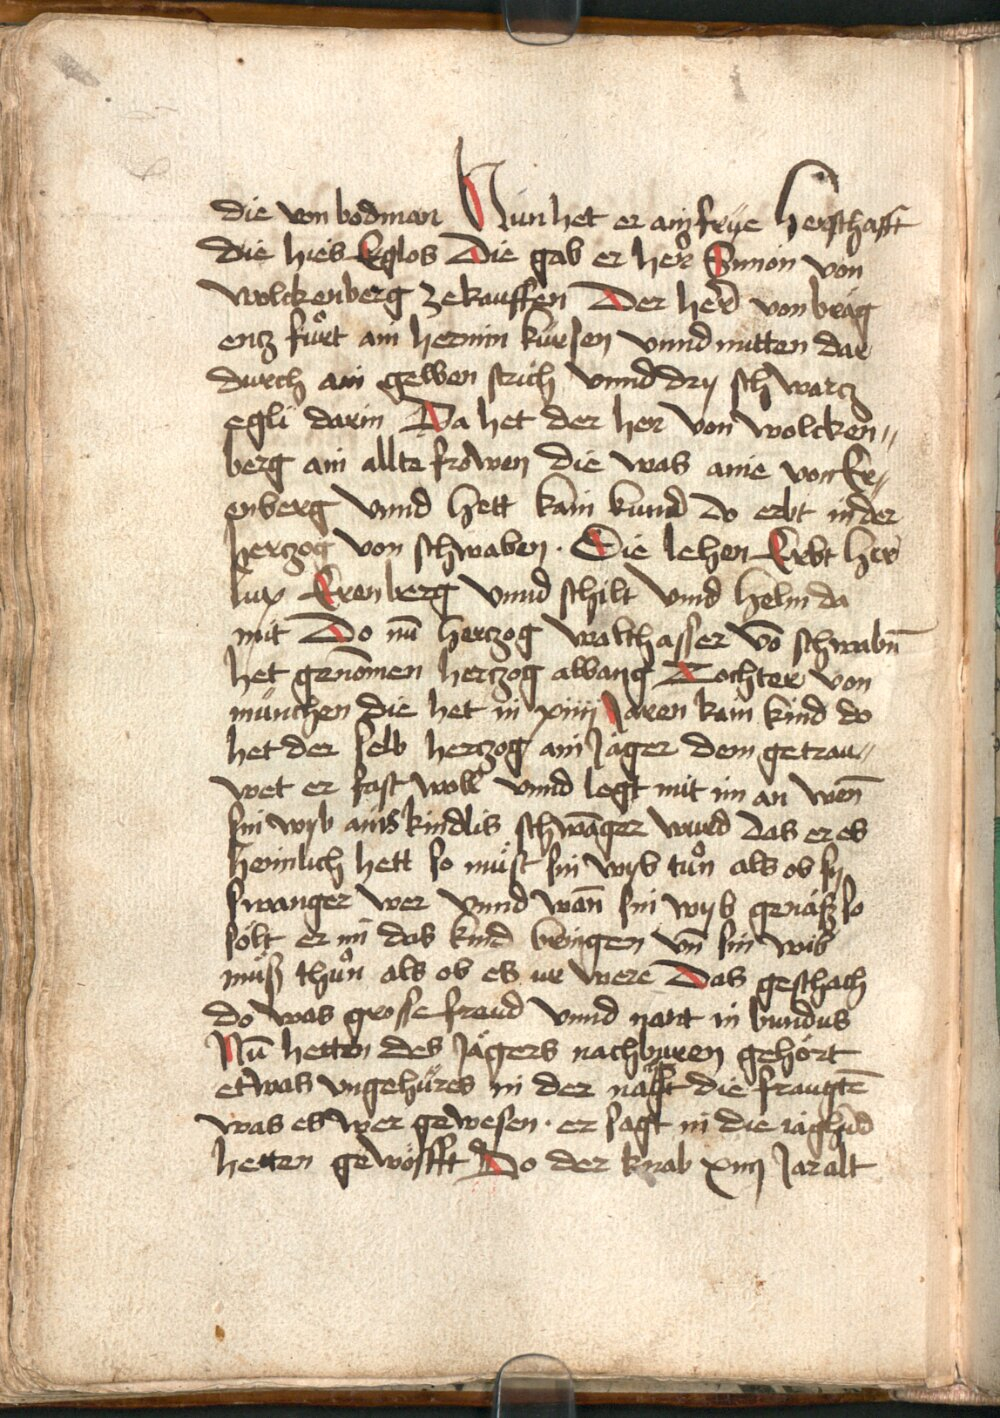 die von bodman Nun het er ain frije herschafft
die hies Eglos Die gab er her Simon von
wolckenberg ze kauffen Der her von bräg
entz fuͦrt ain hermin kürsen vnnd mitten dar
durch ain gelben strich vnnd drij schwartz
egli darin Da het der her von wolcken〃
berg ain allte frowen die was aine von Er〃
enberg vnnd hett kain kund do erbt in der
hertzog von schwaben · Die lehen Erbt her
lux Erenberg vnnd schilt vnnd helm da
mit Do nū hertzog walthasser vō schwabn̄
het genōmen hertzog albang Tochter von
münchen die het in xiiij Jaren kain kind do
het der selb hertzog ain Jäger dem getrau〃
wet er fast woll vnnd legt mit im an wen̄
sin wyb ains kindlis schwāger wurd das er es
heimlich hett so muͤst sin wyb tuͦn als ob sy
swanger wer vnnd wan̄ sin wyb genäß so
sölt er im das kind bringen vn̄ sin wib
muͤß thuͦn als ob es ir were Das geschach
do was grosse freud vnnd nant in bundus
Nū hetten des Jägers nachburen gehört
etwas vngehüres in der näcst die fraugtē
was es wer gewesen · er sagt in die iaghūd
hetten gewöfft Do der knab xiiij Jar alt